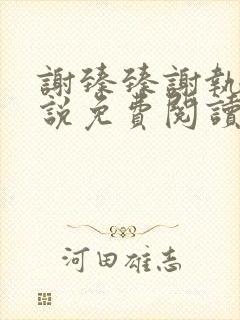 謝臻臻謝執
說免費閱讀
河田雄志